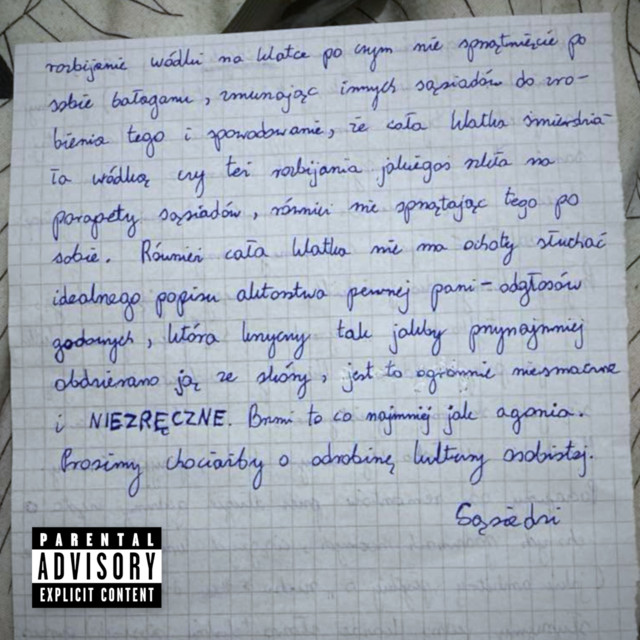 rozbijanie wódki na klatce po czym nie sprzątnięcie po
sobie bałaganu, zmuszając innych sąsiadów do zro-
bienia tego i spowodowanie, że cała klatka śmierdzia-
ła wódką czy też rozbijania jakiegoś szkła na
parapety sąsiadów, również nie sprzątając tego po
sobie. Również cała klatka nie ma ochoty słuchać
idealnego popisu aktorstwa pewnej pani - odgłosów
godowych, która krzyczy tak jakby przynajmniej
obdzierano ją ze skóry, jest to ogromnie niesmaczne
i NIEZRĘCZNE. Brzmi to co najmniej jak agonia.
Prosimy chociażby o odrobinę kultury osobistej.
Sąsiedzi
PARENTAL
ADVISORY
EXPLICIT CONTENT